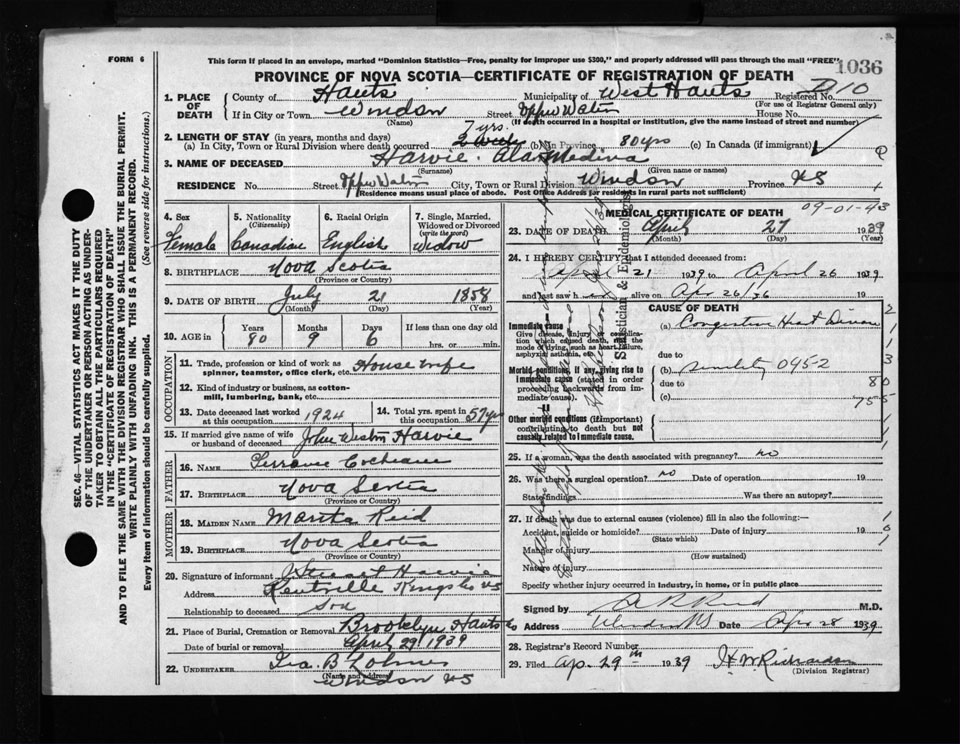 FORM 6
This form if placed in an envelope, marked "Dominion Statistics—Free, penalty for improper use $300," and properly addressed will pass through the mail "FREE"
PROVINCE OF NOVA SCOTIA—CERTIFICATE OF REGISTRATION OF DEATH
1036
1. PLACE OF DEATH
County of Hants Municipality of West Hants Registered No. 10
(For use of Registrar General only)
If in City or Town Windsor Street Upper Water House No.
(Name) (If death occurred in a hospital or institution, give the name instead of street and number)
2. LENGTH OF STAY (in years, months and days)
7 yrs.
(a) In City, Town or Rural Division where death occurred 2 weeks (b) In Province 80 yrs (c) In Canada (if immigrant)
3. NAME OF DECEASED Harvie. Ala Medina
(Surname) (Given name or names)
RESIDENCE No. Street Upper Water City, Town or Rural Division Windsor Province NS
(Residence means usual place of abode. Post Office Address for residents in rural parts not sufficient)
4. Sex
Female
5. Nationality (Citizenship)
Canadian
6. Racial Origin
English
7. Single, Married, Widowed or Divorced (write the word)
widow
8. BIRTHPLACE Nova Scotia
(Province or Country)
9. DATE OF BIRTH July 21 1858
(Month) (Day) (Year)
10. AGE in Years Months Days If less than one day old
80 9 6 hrs. or min.
OCCUPATION
11. Trade, profession or kind of work as spinner, teamster, office clerk, etc. House wife
12. Kind of industry or business, as cotton-mill, lumbering, bank, etc.
13. Date deceased last worked at this occupation 1924
14. Total yrs. spent in this occupation 57 yrs
15. If married give name of wife or husband of deceased John Weston Harvie
FATHER
16. NAME Cochrane
17. BIRTHPLACE Nova Scotia
(Province or Country)
MOTHER
18. MAIDEN NAME Reid
19. BIRTHPLACE Nova Scotia
(Province or Country)
20. Signature of informant Harvie
Address Kentville Kings Co NS
Relationship to deceased Son
21. Place of Burial, Cremation or Removal Brooklyn Hants Co
Date of burial or removal April 29 1939
22. UNDERTAKER Ira B
(Name and address)
Windsor NS
MEDICAL CERTIFICATE OF DEATH
09-01-43
23. DATE OF DEATH April 27 1939
(Month) (Day) (Year)
24. I HEREBY CERTIFY that I attended deceased from:
April 21 1939 to April 26 1939
and last saw h alive on Apr 26/36
CAUSE OF DEATH
Immediate cause
Give disease, injury or complication which caused death, not the mode of dying, such as heart failure, asphyxia, asthenia, etc.
(a) Congestive Heart
due to
Morbid conditions, if any, giving rise to immediate cause (stated in order proceeding backwards from immediate cause).
(b) senility 095-2
due to
(c)
Other morbid conditions (if important) contributing to death but not causally related to immediate cause.
25. If a woman, was the death associated with pregnancy? no
26. Was there a surgical operation? no Date of operation 19
State findings Was there an autopsy?
27. If death was due to external causes (violence) fill in also the following:—
Accident, suicide or homicide? Date of injury 19
(State which)
Manner of injury
(How sustained)
Nature of injury
Specify whether injury occurred in industry, in home, or in public place
Signed by M.D.
Address Windsor NS Date Apr 28 1939
28. Registrar's Record Number
29. Filed Ap. 29th 1939 H W Richardson
(Division Registrar)
Statistician & Epidemiologist
SEC. 46—VITAL STATISTICS ACT MAKES IT THE DUTY OF THE UNDERTAKER OR PERSON ACTING AS UNDERTAKER TO OBTAIN ALL THE PARTICULARS REQUIRED IN THE "CERTIFICATE OF REGISTRATION OF DEATH" AND TO FILE THE SAME WITH THE DIVISION REGISTRAR WHO SHALL ISSUE THE BURIAL PERMIT.
WRITE PLAINLY WITH UNFADING INK. THIS IS A PERMANENT RECORD.
Every item of information should be carefully supplied. (See reverse side for instructions.)